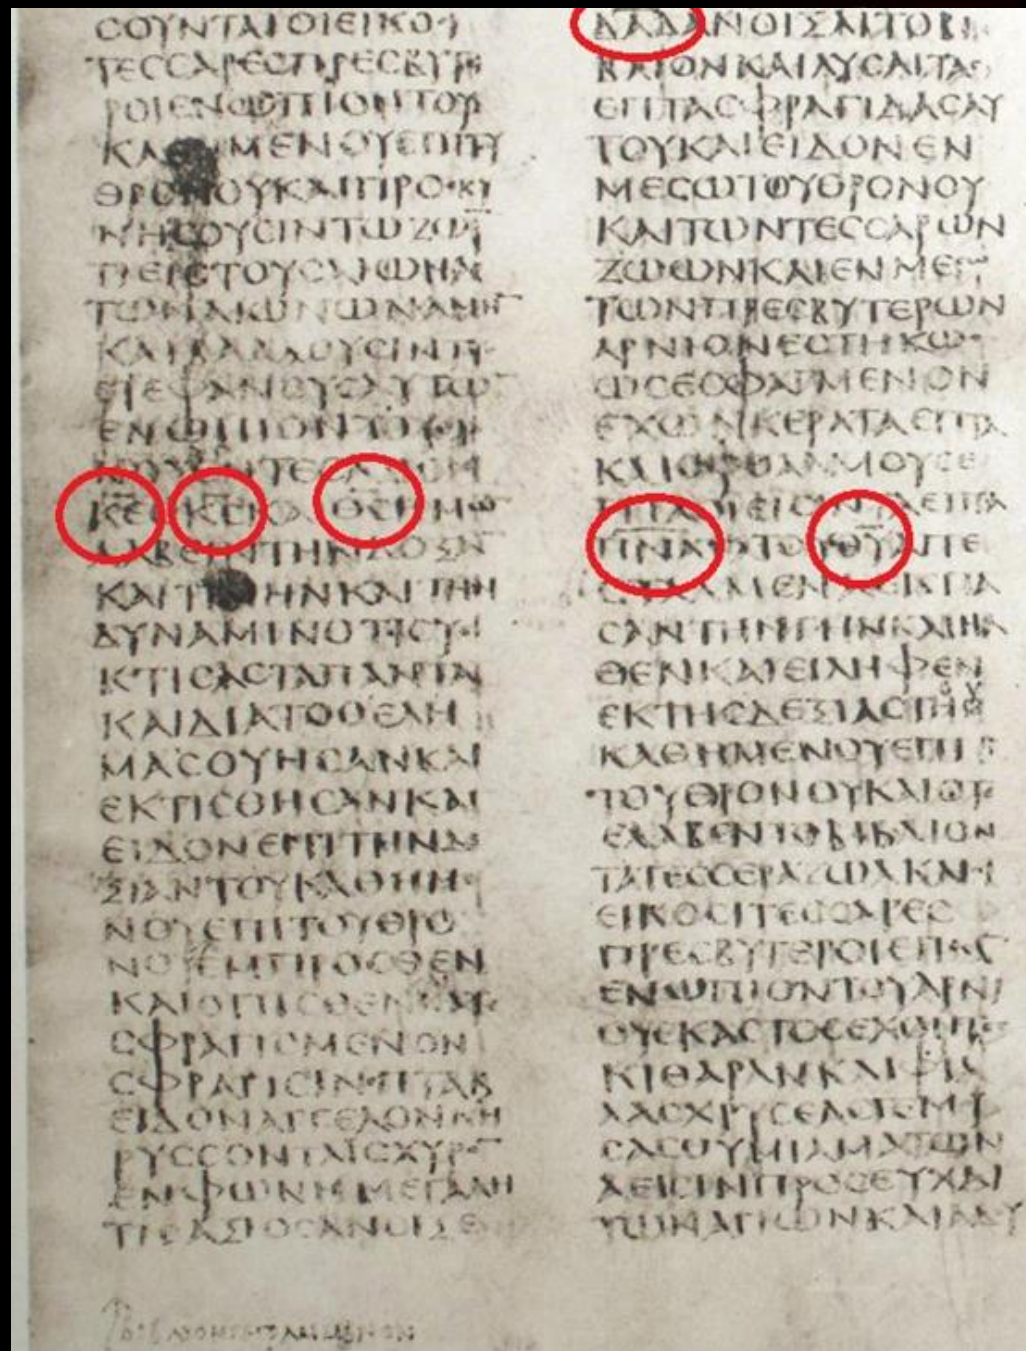 ϹΟΥΝΤΑΙΟΙΕΙΚΟϹΙ
ΤΕϹϹΑΡΕϹΠΡΕϹΒΥΤΕ
ΡΟΙΕΝΩΠΙΟΝΤΟΥ
ΚΑΘΗΜΕΝΟΥΕΠΙΤΟΥ
ΘΡΟΝΟΥΚΑΙΠΡΟϹΚΥ
ΝΗϹΟΥϹΙΝΤΩΖΩΝ
ΤΙΕΙϹΤΟΥϹΑΙΩΝΑ
ΤΩΝΑΙΩΝΩΝΑΜΗΝ
ΚΑΙΒΑΛΟΥϹΙΝΤΟΥ
ϹΤΕΦΑΝΟΥϹΑΥΤΩ
ΕΝΩΠΙΟΝΤΟΥΘΡ
ΚΕΟΚϹΚΑΙΟΘϹΗΜΩ
ΛΑΒΕΙΝΤΗΝΔΟΞΑΝ
ΚΑΙΤΙΜΗΝΚΑΙΤΗΝ
ΔΥΝΑΜΙΝΟΤΙϹΥ
ΚΤΙϹΑϹΤΑΠΑΝΤΑ
ΚΑΙΔΙΑΤΟΘΕΛΗ
ΜΑϹΟΥΗϹΑΝΚΑΙ
ΕΚΤΙϹΘΗϹΑΝΚΑΙ
ΕΙΔΟΝΕΠΙΤΗΝΔΕ
ΞΙΑΝΤΟΥΚΑΘΗΜΕ
ΝΟΥΕΠΙΤΟΥΘΡΟ
ΝΟΥΕΜΠΡΟϹΘΕΝ
ΚΑΙΟΠΙϹΘΕΝΚΑΤΕ
ϹΦΡΑΓΙϹΜΕΝΟΝ
ϹΦΡΑΓΙϹΙΝΕΠΤΑΚ
ΕΙΔΟΝΑΓΓΕΛΟΝΚΗ
ΡΥϹϹΟΝΤΑΙϹΧΥΡΟ
ΕΝΦΩΝΗΜΕΓΑΛΗ
ΤΙϹΑΞΙΟϹΑΝΟΙΞΕ
ΔΑΔΑΝΟΙΞΑΙΤΟΒΙ
ΒΛΙΟΝΚΑΙΛΥϹΑΙΤΑϹ
ΕΠΤΑϹΦΡΑΓΙΔΑϹΑΥ
ΤΟΥΚΑΙΕΙΔΟΝΕΝ
ΜΕϹΩΤΟΥΘΡΟΝΟΥ
ΚΑΙΤΩΝΤΕϹϹΑΡΩΝ
ΖΩΩΝΚΑΙΕΝΜΕϹΩ
ΤΩΝΠΡΕϹΒΥΤΕΡΩΝ
ΑΡΝΙΟΝΕϹΤΗΚΩϹ
ΩϹΕϹΦΑΓΜΕΝΟΝ
ΕΧΩΝΚΕΡΑΤΑΕΠΤΑ
ΚΑΙΟΦΘΑΛΜΟΥϹΕ
ΠΤΑΟΙΕΙϹΙΝΤΑΕΠΤΑ
ΠΝΑΤΟΥΘΥΑΠΕ
ϹΤΑΛΜΕΝΑΕΙϹΠΑ
ϹΑΝΤΗΝΓΗΝΚΑΙΗΛ
ΘΕΝΚΑΙΕΙΛΗΦΕΝ
ΕΚΤΗϹΔΕΞΙΑϹΤΟΥ
ΚΑΘΗΜΕΝΟΥΕΠΙ
ΤΟΥΘΡΟΝΟΥΚΑΙΟΤΕ
ΕΛΑΒΕΝΤΟΒΙΒΛΙΟΝ
ΤΑΤΕϹϹΕΡΑΖΩΑΚΑΙ
ΕΙΚΟϹΙΤΕϹϹΑΡΕϹ
ΠΡΕϹΒΥΤΕΡΟΙΕΠΕϹ
ΕΝΩΠΙΟΝΤΟΥΑΡΝΙ
ΟΥΕΚΑϹΤΟϹΕΧΟΝΤΕϹ
ΚΙΘΑΡΑΝΚΑΙΦΙΑ
ΛΑϹΧΡΥϹΕΑϹΓΕΜΟΥ
ϹΑϹΘΥΜΙΑΜΑΤΩΝ
ΑΕΙϹΙΝΠΡΟϹΕΥΧΑΙ
ΤΩΝΑΓΙΩΝΚΑΙΑΔΟΥ